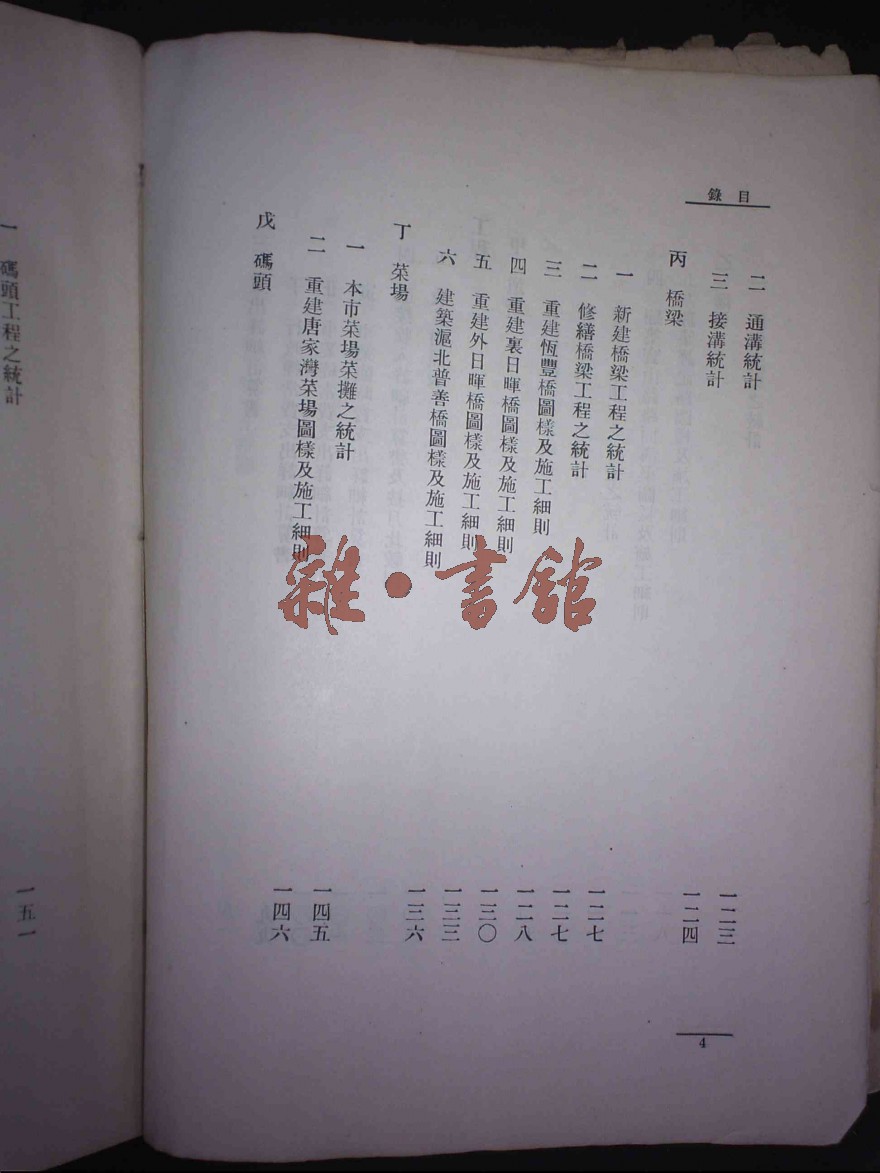 目錄
二 通溝統計 一二三
三 接溝統計 一二四
丙 橋梁
一 新建橋梁工程之統計 一二七
二 修繕橋梁工程之統計 一二七
三 重建恆豐橋圖樣及施工細則 一二八
四 重建裏日暉橋圖樣及施工細則 一三〇
五 重建外日暉橋圖樣及施工細則 一三三
六 建築滬北普善橋圖樣及施工細則 一三六
丁 菜場
一 本市菜場菜攤之統計 一四五
二 重建唐家灣菜場圖樣及施工細則 一四六
戊 碼頭
4
一 碼頭工程之統計 一五一
雜·書館